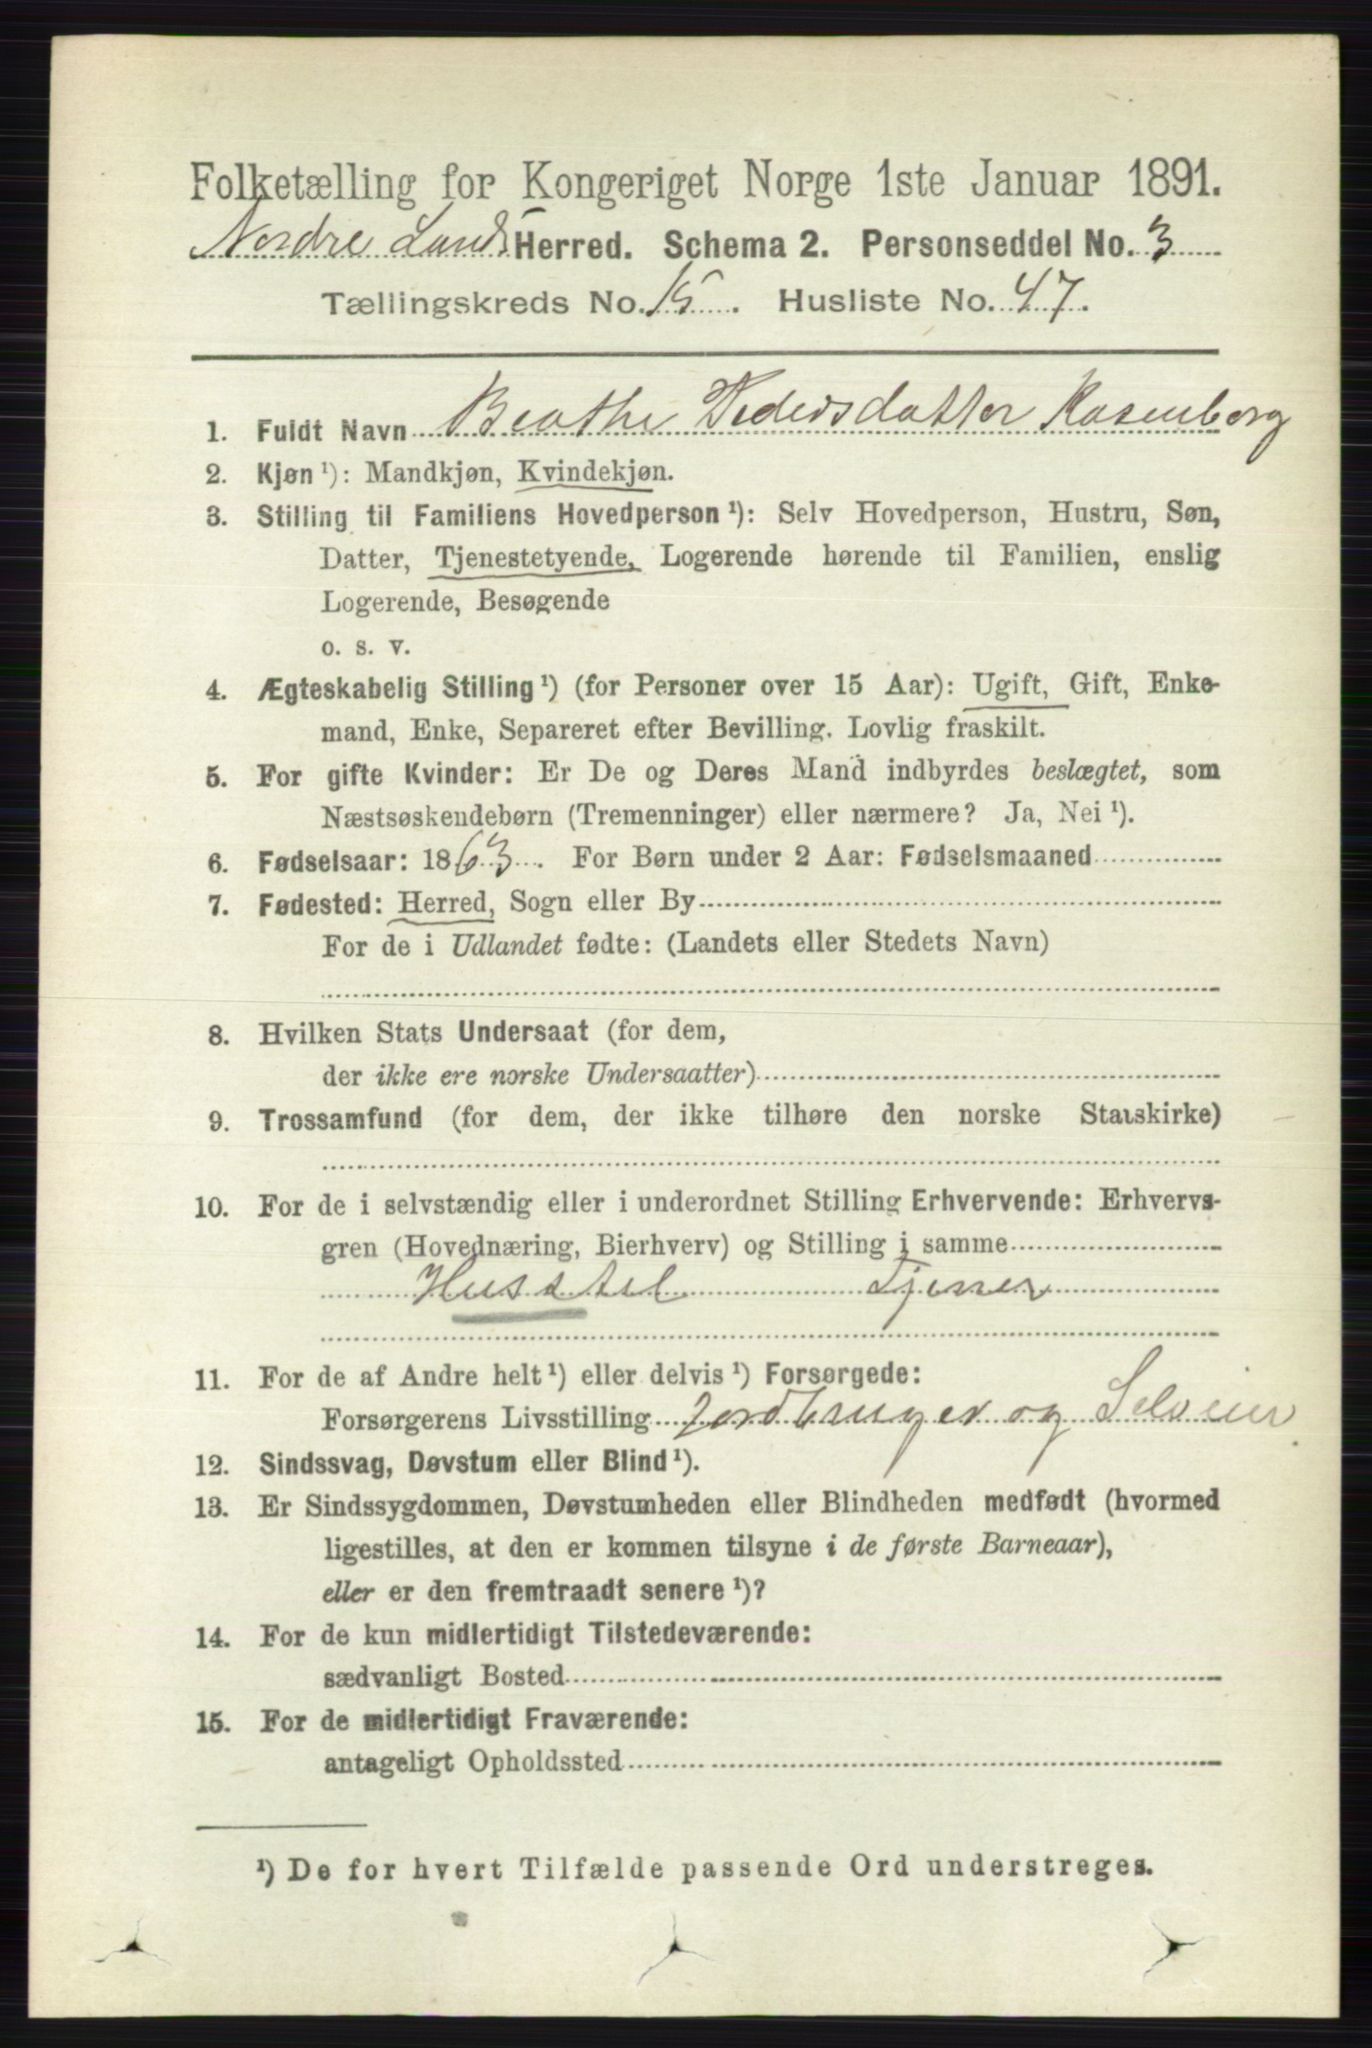 Folketælling for Kongeriget Norge 1ste Januar 1891.
Nordre Lands Herred. Schema 2. Personseddel No. 3
Tællingskreds No. 15. Husliste No. 47.
1. Fuldt Navn Beathe Pedersdatter Rosenberg
2. Kjøn ¹): Mandkjøn, Kvindekjøn.
3. Stilling til Familiens Hovedperson ¹): Selv Hovedperson, Hustru, Søn,
Datter, Tjenestetyende, Logerende hørende til Familien, enslig
Logerende, Besøgende
o. s. v.
4. Ægteskabelig Stilling ¹) (for Personer over 15 Aar): Ugift, Gift, Enke-
mand, Enke, Separeret efter Bevilling. Lovlig fraskilt.
5. For gifte Kvinder: Er De og Deres Mand indbyrdes beslægtet, som
Næstsøskendebørn (Tremenninger) eller nærmere? Ja, Nei ¹).
6. Fødselsaar: 1863. For Børn under 2 Aar: Fødselsmaaned
7. Fødested: Herred, Sogn eller By
For de i Udlandet fødte: (Landets eller Stedets Navn)
8. Hvilken Stats Undersaat (for dem,
der ikke ere norske Undersaatter)
9. Trossamfund (for dem, der ikke tilhøre den norske Statskirke)
10. For de i selvstændig eller i underordnet Stilling Erhvervende: Erhvervs-
gren (Hovednæring, Bierhverv) og Stilling i samme
Husstel Tjener
11. For de af Andre helt ¹) eller delvis ¹) Forsørgede:
Forsørgerens Livsstilling Jordbruger og Selveier
12. Sindssvag, Døvstum eller Blind ¹).
13. Er Sindssygdommen, Døvstumheden eller Blindheden medfødt (hvormed
ligestilles, at den er kommen tilsyne i de første Barneaar),
eller er den fremtraadt senere ¹)?
14. For de kun midlertidigt Tilstedeværende:
sædvanligt Bosted
15. For de midlertidigt Fraværende:
antageligt Opholdssted
¹) De for hvert Tilfælde passende Ord understreges.